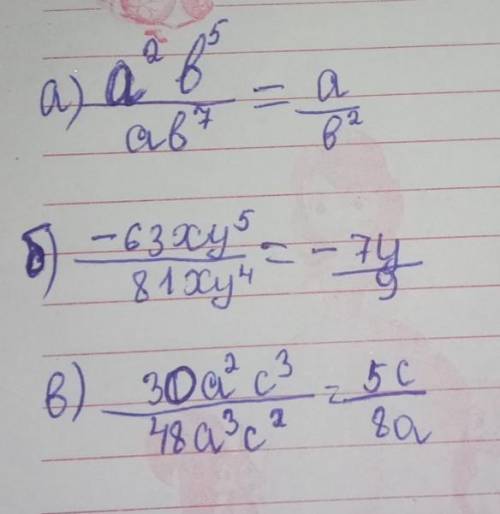 а) a² b⁵ / ab⁷ = a / b²
б) -63xy⁵ / 81xy⁴ = - 7y / 9
в) 30a² c³ / 48a³c² = 5c / 8a